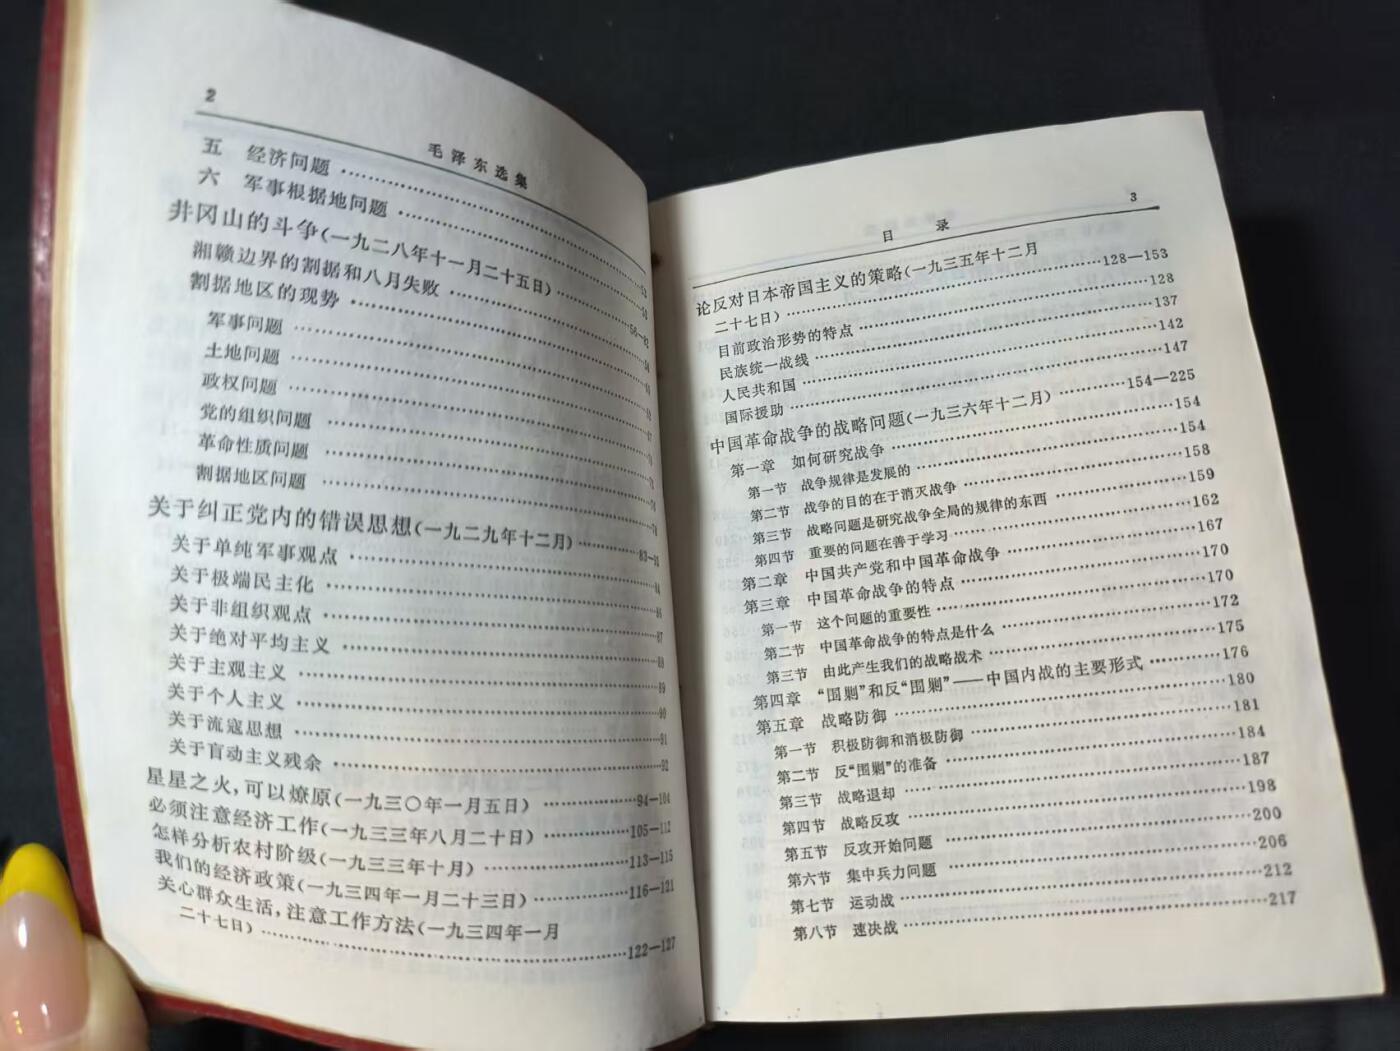 2
毛泽东选集
五 经济问题 ……………… 52
六 军事根据地问题 ……………… 53
井冈山的斗争(一九二八年十一月二十五日) ……… 56—82
湘赣边界的割据和八月失败 ………………
割据地区的现势 ………………
军事问题 ………………
土地问题 ………………
政权问题 ………………
党的组织问题 ………………
革命性质问题 ………………
割据地区问题 ………………
关于纠正党内的错误思想(一九二九年十二月) ……… 83—93
关于单纯军事观点 ……………… 84
关于极端民主化 ……………… 86
关于非组织观点 ……………… 87
关于绝对平均主义 ……………… 88
关于主观主义 ……………… 89
关于个人主义 ……………… 90
关于流寇思想 ……………… 91
关于盲动主义残余 ……………… 92
星星之火,可以燎原(一九三〇年一月五日) ……… 94—104
必须注意经济工作(一九三三年八月二十日) ……… 105—112
怎样分析农村阶级(一九三三年十月) ……… 113—115
我们的经济政策(一九三四年一月二十三日) ……… 116—121
关心群众生活,注意工作方法(一九三四年一月
二十七日) ……………… 122—127
目 录
3
论反对日本帝国主义的策略(一九三五年十二月
二十七日) ……………… 128—153
目前政治形势的特点 ……………… 128
民族统一战线 ……………… 137
人民共和国 ……………… 142
国际援助 ……………… 147
中国革命战争的战略问题(一九三六年十二月) ……… 154—225
第一章 如何研究战争 ……………… 154
第一节 战争规律是发展的 ……………… 154
第二节 战争的目的在于消灭战争 ……………… 158
第三节 战略问题是研究战争全局的规律的东西 ……… 159
第四节 重要的问题在善于学习 ……………… 162
第二章 中国共产党和中国革命战争 ……………… 167
第三章 中国革命战争的特点 ……………… 170
第一节 这个问题的重要性 ……………… 170
第二节 中国革命战争的特点是什么 ……………… 172
第三节 由此产生我们的战略战术 ……………… 175
第四章 “围剿”和反“围剿”——中国内战的主要形式 ……… 176
第五章 战略防御 ……………… 180
第一节 积极防御和消极防御 ……………… 181
第二节 反“围剿”的准备 ……………… 184
第三节 战略退却 ……………… 187
第四节 战略反攻 ……………… 198
第五节 反攻开始问题 ……………… 200
第六节 集中兵力问题 ……………… 206
第七节 运动战 ……………… 212
第八节 速决战 ……………… 217